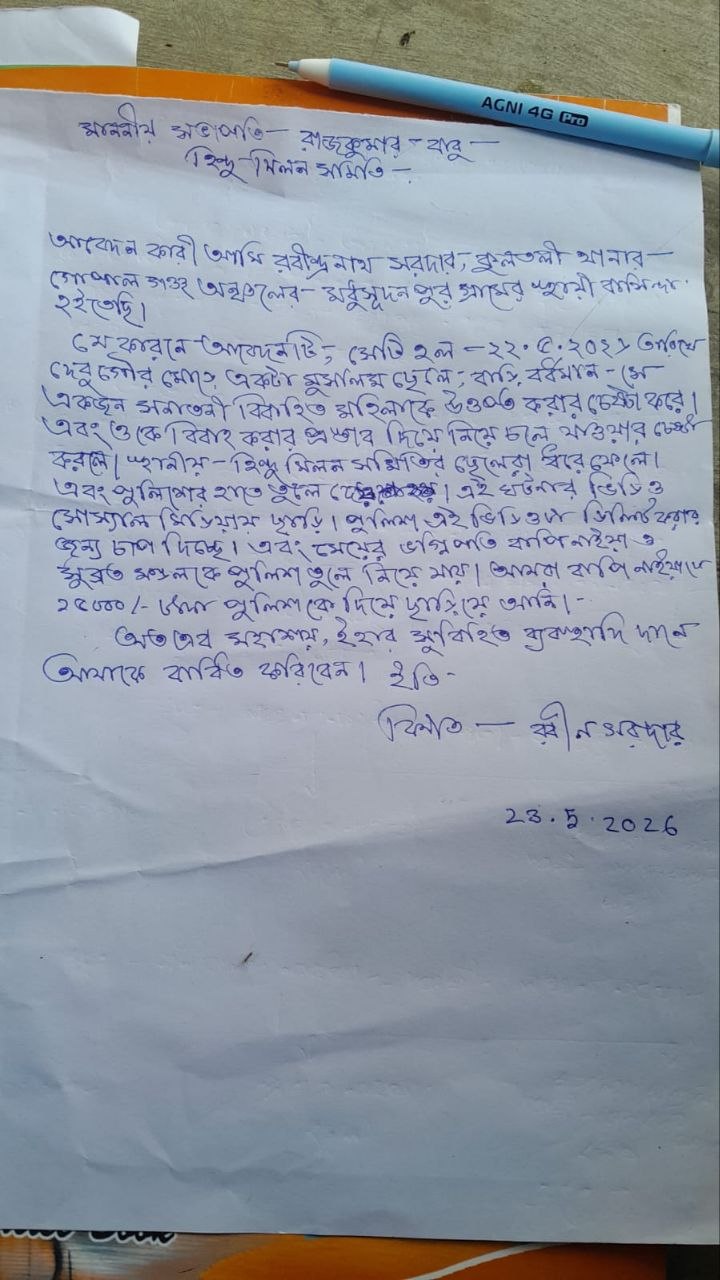 AGNI 4G Pro
মাননীয় সভাপতি — রাজকুমার - বাবু —
হিন্দু মিলন সমিতি —.
আবেদন কারী আমি রবীন্দ্রনাথ সরদার, কুলতলী থানার —
গোপাল গঞ্জ অঞ্চলের - মধুসূদনপুর গ্রামের স্থায়ী বাসিন্দা
হইতেছি।
যে কারনে আবেদনটি, সেটি হল — ২২.৫.২০২৬ তারিখে
মোড়ে একটা মুসলিম ছেলে, বাড়ি বর্ধমান - সে
একজন সনাতনী বিবাহিত মহিলাকে করার চেষ্টা করে।
এবং ওকে বিবাহ করার প্রস্তাব দিয়ে নিয়ে চলে যাওয়ার চেষ্টা
করলে। স্থানীয় - হিন্দু মিলন সমিতির ছেলেরা ধরে ফেলে।
এবং পুলিশের হাতে তুলে । এই ঘটনার ভিডিও
সোস্যাল মিডিয়ায় ছাড়ি। পুলিশ এই ভিডিওটা ডিলিট করার
জন্য চাপ দিচ্ছে। এবং মেয়ের ভগ্নিপতি বাপি নাইয়া ও
সুব্রত মণ্ডলকে পুলিশ তুলে নিয়ে যায়। আমরা বাপি নাইয়াকে
২৫০০০/- টাকা পুলিশকে দিয়ে ছাড়িয়ে আনি।-
অতএব মহাশয়, ইহার সুবিহিত ব্যবস্থাদি দানে
আমাকে বাধিত করিবেন। ইতি-
বিনীত — রবীন সরদার
23.5.2026